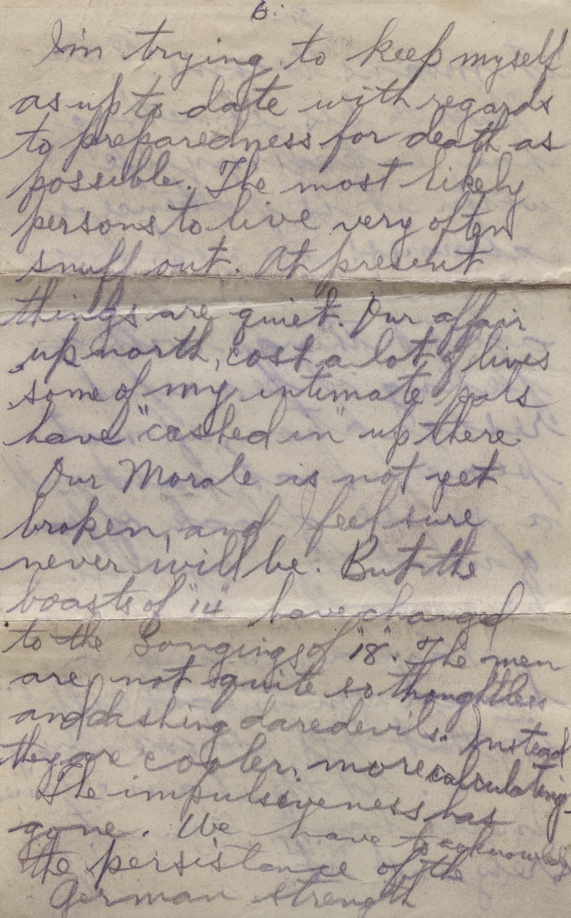 6.
I'm trying to keep myself
as up to date with regards
to preparedness for death as
possible. The most likely
persons to live very often
snuff out. At present
things are quiet. Our affair
up north, cost a lot of lives
some of my intimate pals
have "cashed in" up there
Our Morale is not yet
broken, and I feel sure
never will be. But the
boasts of "14" have changed
to the Longings of "18". The men
are not quite so thoughtless
and dashing daredevils. Instead
they are cooler, more calculating.
The impulsiveness has
gone. We have to acknowledge
the persistance of the
German strength